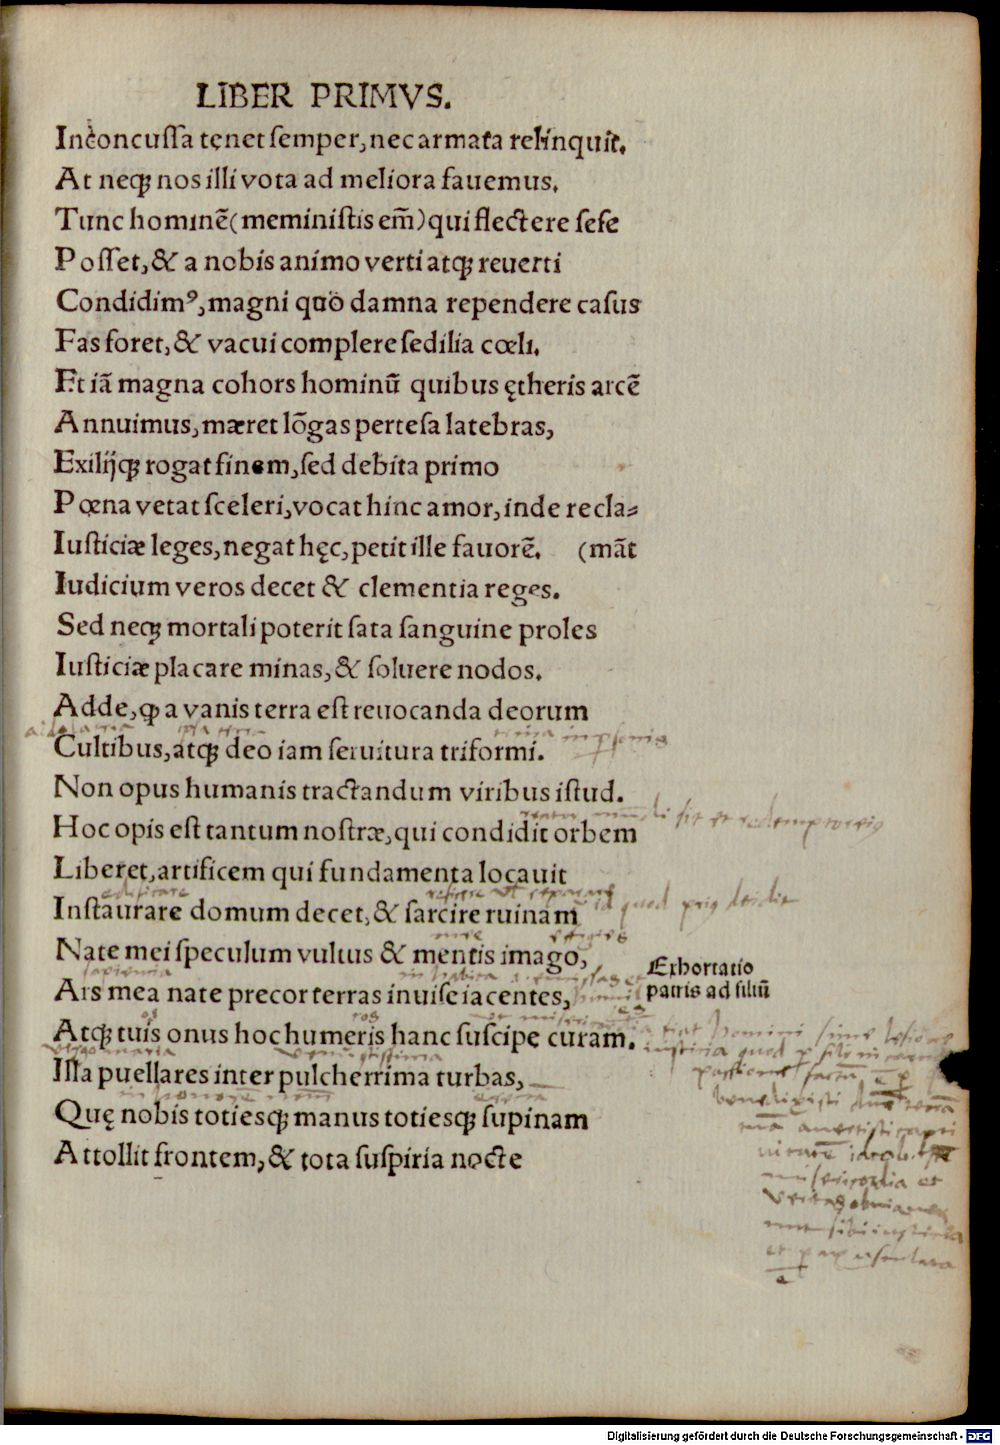 LIBER PRIMVS.
Inconcussa tenet semper, nec armata relinquit.
At neqꝫ nos illi vota ad meliora fauemus.
Tunc hominē (meministis em̄) qui flectere sese
Posset, & a nobis animo verti atqꝫ reuerti
Condidimꝰ, magni quō damna rependere casus
Fas foret, & vacui complere sedilia cœli.
Et iā magna cohors hominū quibus ętheris arcē
Annuimus, mæret lōgas pertesa latebras,
Exilijqꝫ rogat finem, sed debita primo
Pœna vetat sceleri, vocat hinc amor, inde recla⸗
Iusticiæ leges, negat hęc, petit ille fauorē. (māt
Iudicium veros decet & clementia reges.
Sed neqꝫ mortali poterit sata sanguine proles
Iusticiæ placare minas, & soluere nodos.
Adde, ꝙ a vanis terra est reuocanda deorum
Cultibus, atqꝫ deo iam seruitura triformi.
Non opus humanis tractandum viribus istud.
sit et redemptor eius
Hoc opis est tantum nostræ, qui condidit orbem
Liberet, artificem qui fundamenta locauit
edificare
id quod prius
Instaurare domum decet, & sarcire ruinam
Nate mei speculum vultus & mentis imago,
sapiencia
Exhortatio
patris ad filiū
Ars mea nate precor terras inuise iacentes,
Atqꝫ tuis onus hoc humeris hanc suscipe curam.
virgo maria
Issa puellares inter pulcherrima turbas,
Quę nobis totiesqꝫ manus totiesqꝫ supinam
Attollit frontem, & tota suspiria nocte
misericordia et
Digitalisierung gefördert durch die Deutsche Forschungsgemeinschaft - DFG